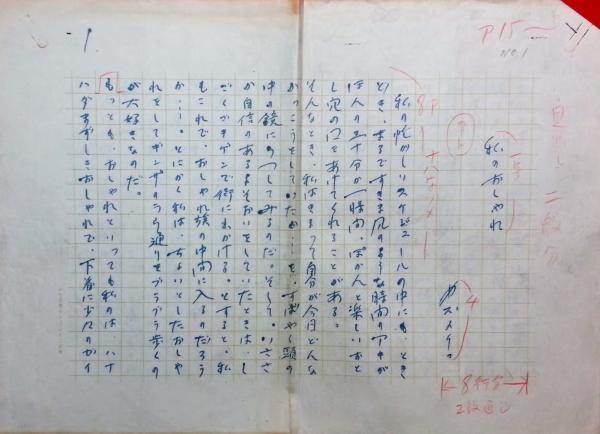 P15
No.1
見出し 二段分
一号
私のおしゃれ
4
8P
私の忙がしいスケジュールの中にも、とき
どき、まるですきま風のような時間のアキが
ほんの三十分か一時間、ぽかんと楽しいおと
し穴の口をあけてくれることがある。
そんなとき、私はきまって自分が今日どんな
かっこうをしていたか…を、すばやく頭の
中の鏡にうつしてみるのだ。そして、いささ
か自信のあるよそおいをしていたときは、し
ごくゴキゲンで街に出かける。とすると、私
もこれで、おしゃれ族の仲間に入るのだろう
か…。とにかく私は、ちょいとしたおしゃ
れをしてギンザのうら通りをブラブラ歩くの
が大好きなのだ。
もっとも、おしゃれといっても私のは、ハナ
ハダあやしきおしゃれで、下着に少々のカイ
8行分
2段通し